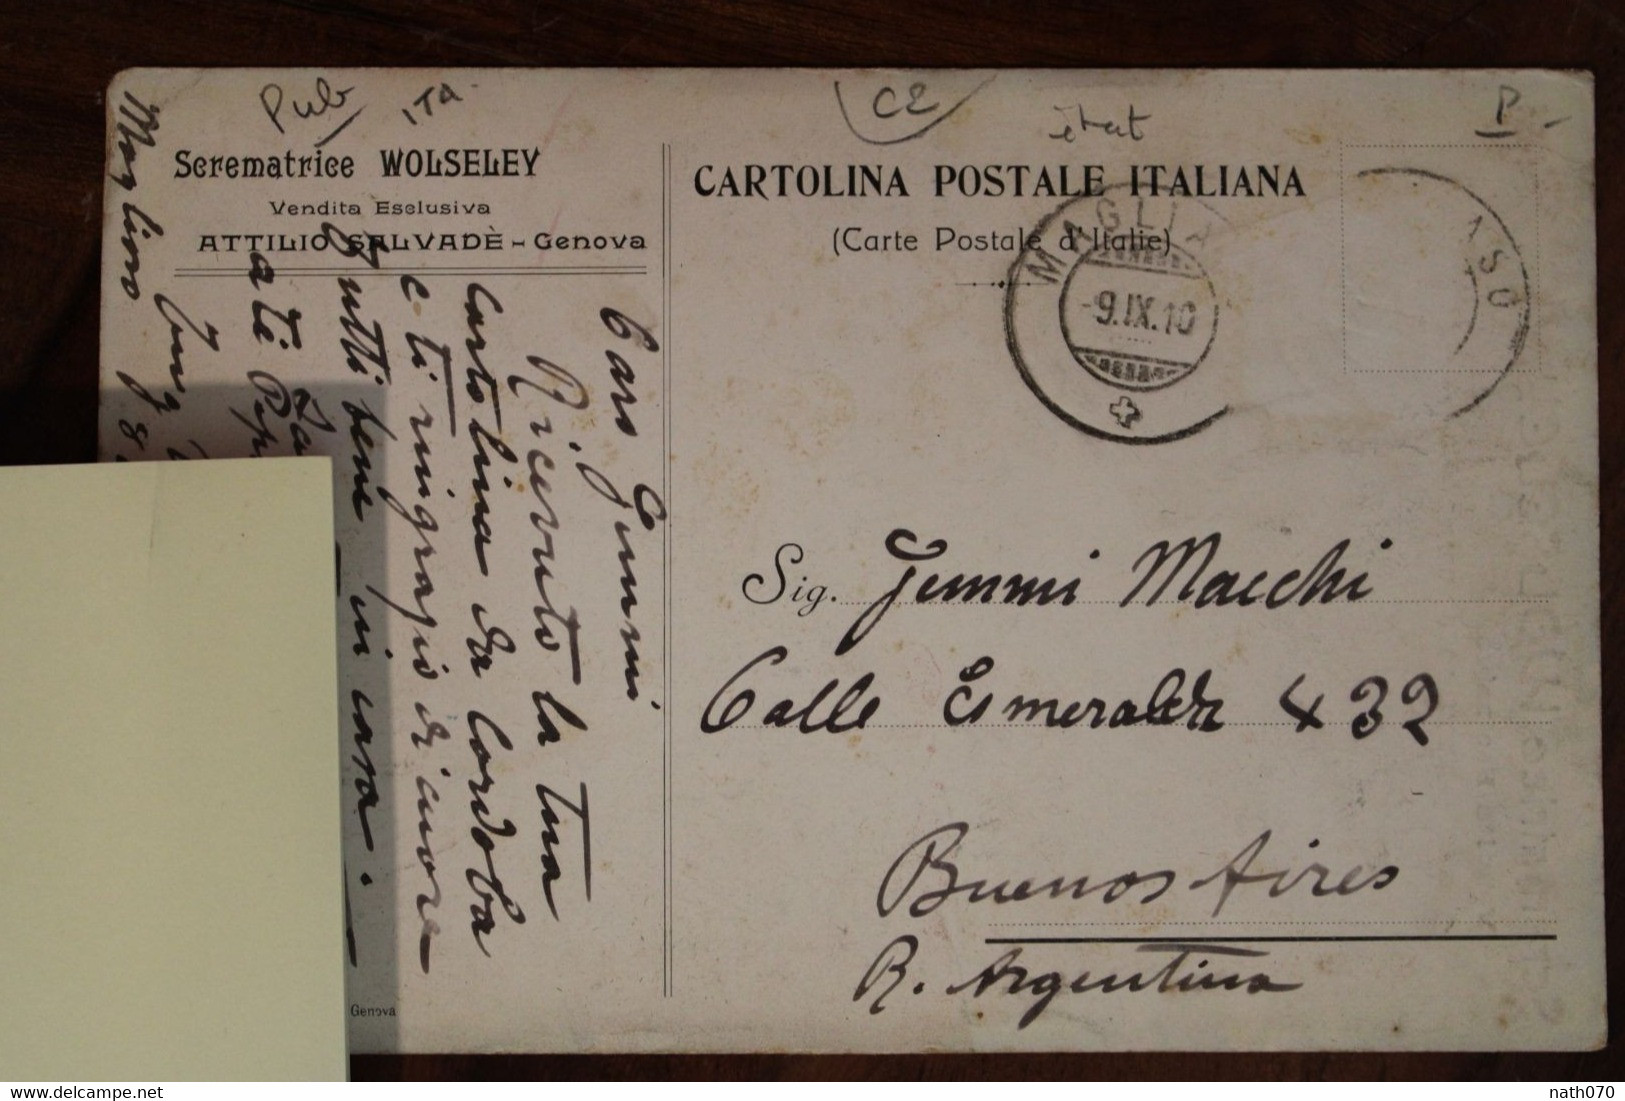 Pub
ITA
CE
état
P
Scrematrice WOLSELEY
Vendita Esclusiva
ATTILIO SALVADÈ - Genova
CARTOLINA POSTALE ITALIANA
(Carte Postale d'Italie)
MAGLI ASO
-9.IX.10
Caro Gemmi
Ricevuto la tua
Cartolina da Cordoba
e ti ringrazio di cuore
Tutti bene in casa.
Magliaso
Sig. Gemmi Macchi
Calle Esmeralda 432
Buenos Aires
R. Argentina
Genova
delcampe.net
nath070